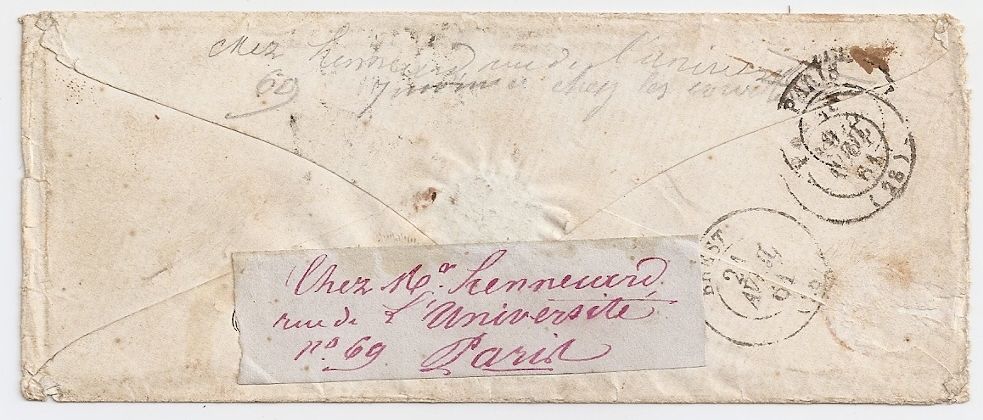 chez hennecard rue de l'université
69 chez les
PARIS
(28)
61
BREST
21
AVRIL
61
Chez Mr. hennecard
rue de L'Université
no 69 Paris